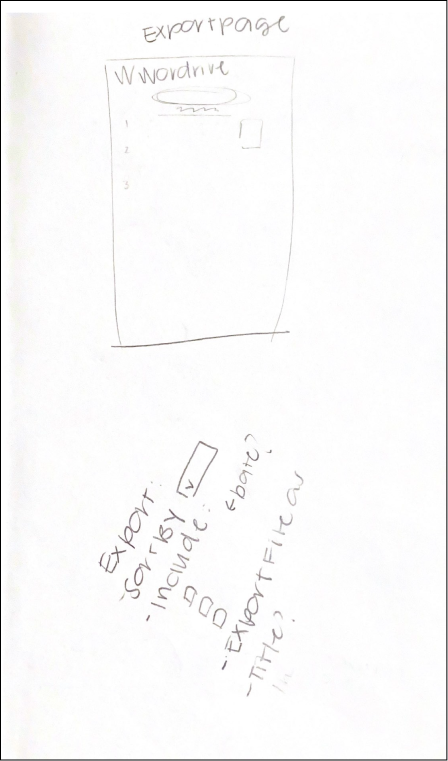 Exportpage
W Wordrive
1
2
3
Export:
-Sort By
-Include:
+Date?
-Export File as
-Title?